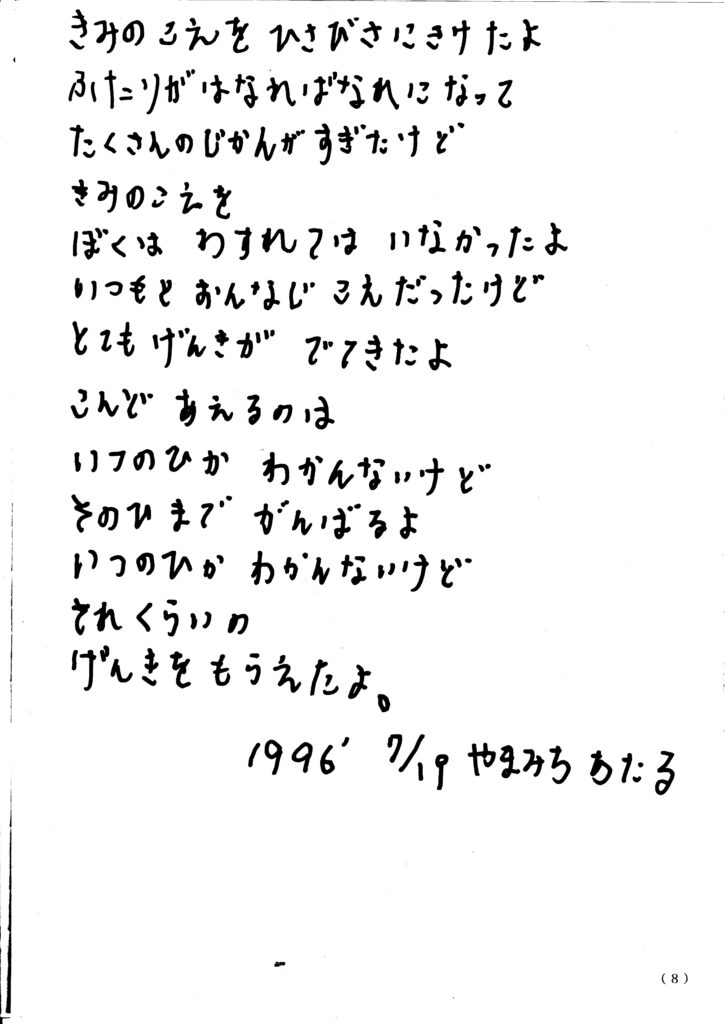 きみのこえを ひさびさにきけたよ
ふたりがはなればなれになって
たくさんのじかんがすぎたけど
きみのこえを
ぼくは わすれては いなかったよ
いつもと おんなじ こえだったけど
とてもげんきが でてきたよ
こんど あえるのは
いつのひか わかんないけど
そのひまで がんばるよ
いつのひか わかんないけど
それくらいの
げんきをもらえたよ。
1996' 7/19 やまみち あたる
(8)